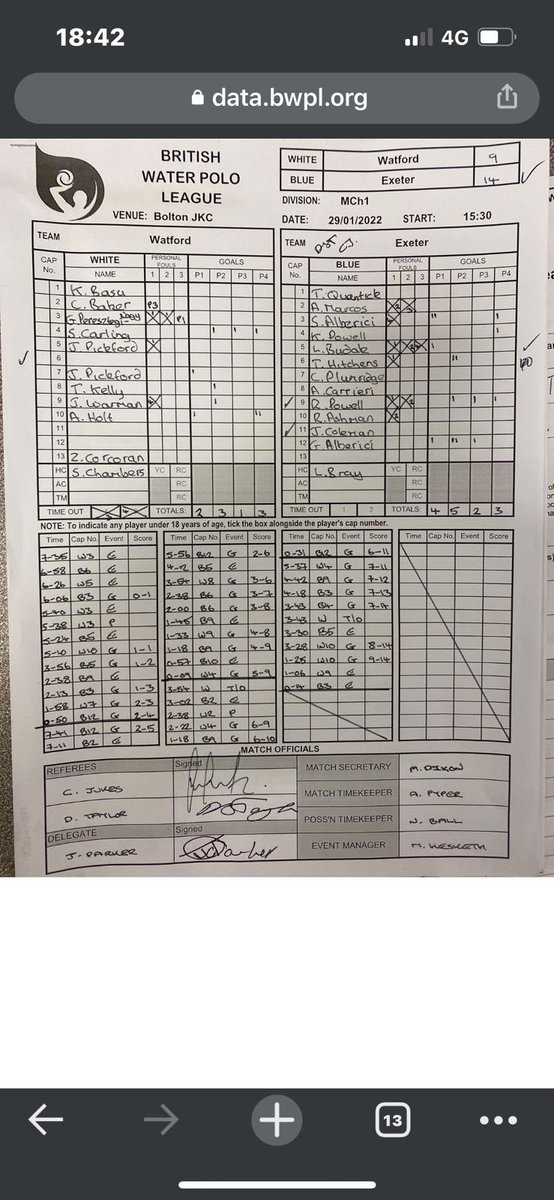 18:42
4G
data.bwpl.org
BRITISH
WATER POLO
LEAGUE
VENUE: Bolton JKC
WHITE Watford 9
BLUE Exeter 14
DIVISION: MCh1
DATE: 29/01/2022 START: 15:30
TEAM Watford
CAP No. WHITE NAME PERSONAL FOULS 1 2 3 GOALS P1 P2 P3 P4
1 K. Basu
2 C. Baber P3
3 G. Peresztegi-Nagy P1
4 S. Carling
5 J. Pickford
6
7 J. Pickford
8 T. Kelly
9 J. Warman
10 A. Holt
11
12
13 Z. Corcoran
HC S. Chambers YC RC
AC RC
TM RC
TIME OUT TOTALS 2 3 1 3
TEAM Exeter
CAP No. BLUE NAME PERSONAL FOULS 1 2 3 GOALS P1 P2 P3 P4
1 T. Quantick
2 A. Marcos
3 S. Alberici
4 K. Powell
5 L. Budak
6 T. Hitchens
7 C. Plumridge
8 A. Carrieri
9 R. Powell
10 R. Ashman
11 J. Coleman
12 G. Alberici
13
HC L. Bray YC RC
AC RC
TM RC
TIME OUT 1 2 TOTALS 4 5 2 3
NOTE: To indicate any player under 18 years of age, tick the box alongside the player's cap number.
Time Cap No. Event Score
7-35 W3 E
6-58 B6 E
6-26 W5 E
6-06 B3 G 0-1
5-40 W3 E
5-38 W3 P
5-24 B5 E
5-10 W10 G 1-1
3-56 B5 G 1-2
2-38 B9 E
2-13 B3 G 1-3
1-58 W7 G 2-3
0-50 B12 G 2-4
7-41 B12 G 2-5
7-11 B2 E
Time Cap No. Event Score
5-56 B12 G 2-6
4-12 B5 E
3-54 W8 G 3-6
2-38 B6 G 3-7
2-00 B6 G 3-8
1-45 B9 E
1-33 W9 G 4-8
1-18 B9 G 4-9
0-57 B10 E
0-09 W4 G 5-9
3-54 W T/O
3-02 B2 E
2-38 W2 P
2-22 W4 G 6-9
1-18 B9 G 6-10
Time Cap No. Event Score
0-31 B12 G 6-11
5-37 W4 G 7-11
4-42 B9 G 7-12
4-18 B3 G 7-13
3-43 B4 G 7-14
3-43 W T/O
3-30 B5 E
3-28 W10 G 8-14
1-25 W10 G 9-14
1-06 W9 E
0-14 B3 E
Time Cap No. Event Score
MATCH OFFICIALS
REFEREES Signed
C. JUKES
D. TAYLOR
DELEGATE Signed
J. PARKER
MATCH SECRETARY M. DIXON
MATCH TIMEKEEPER A. PYPER
POSS'N TIMEKEEPER N. BALL
EVENT MANAGER M. HESKETH
13